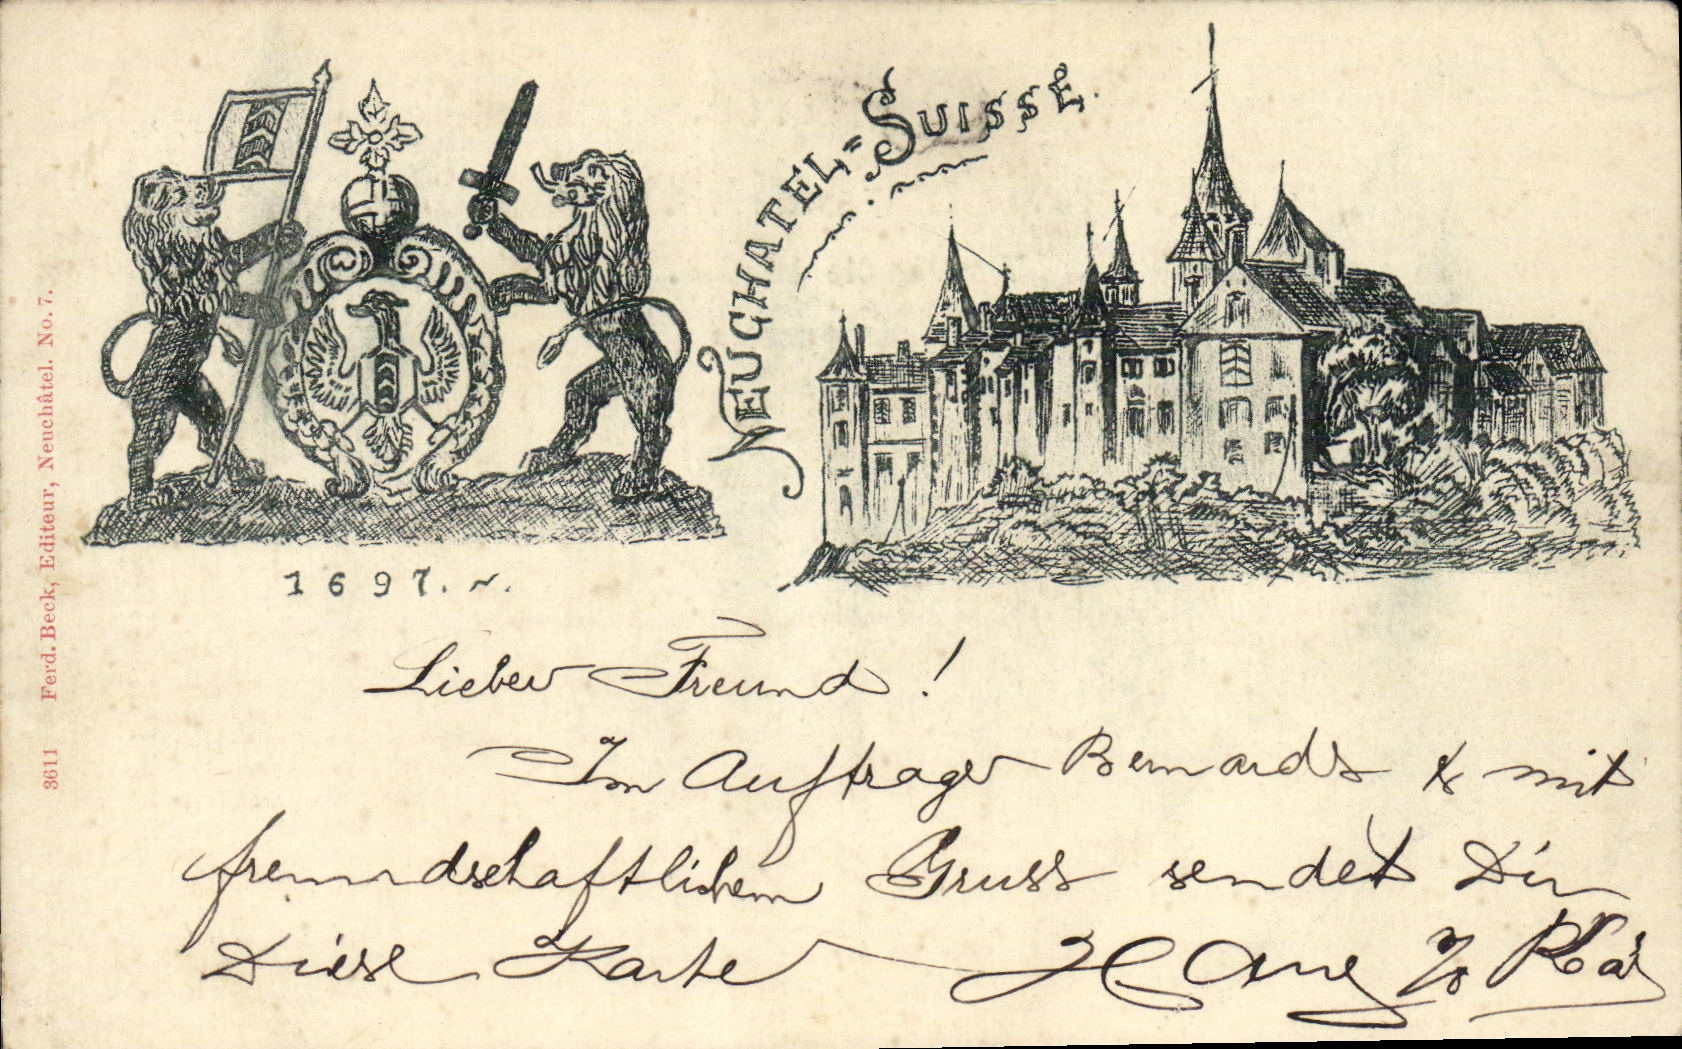 NEUCHATEL-SUISSE.
1697.
3611 Ferd. Beck, Editeur, Neuchâtel. No. 7.
Lieber Freund!
Im Auftrage Bernards & mit
freundschaftlichem Gruss sendet Dir
diese Karte